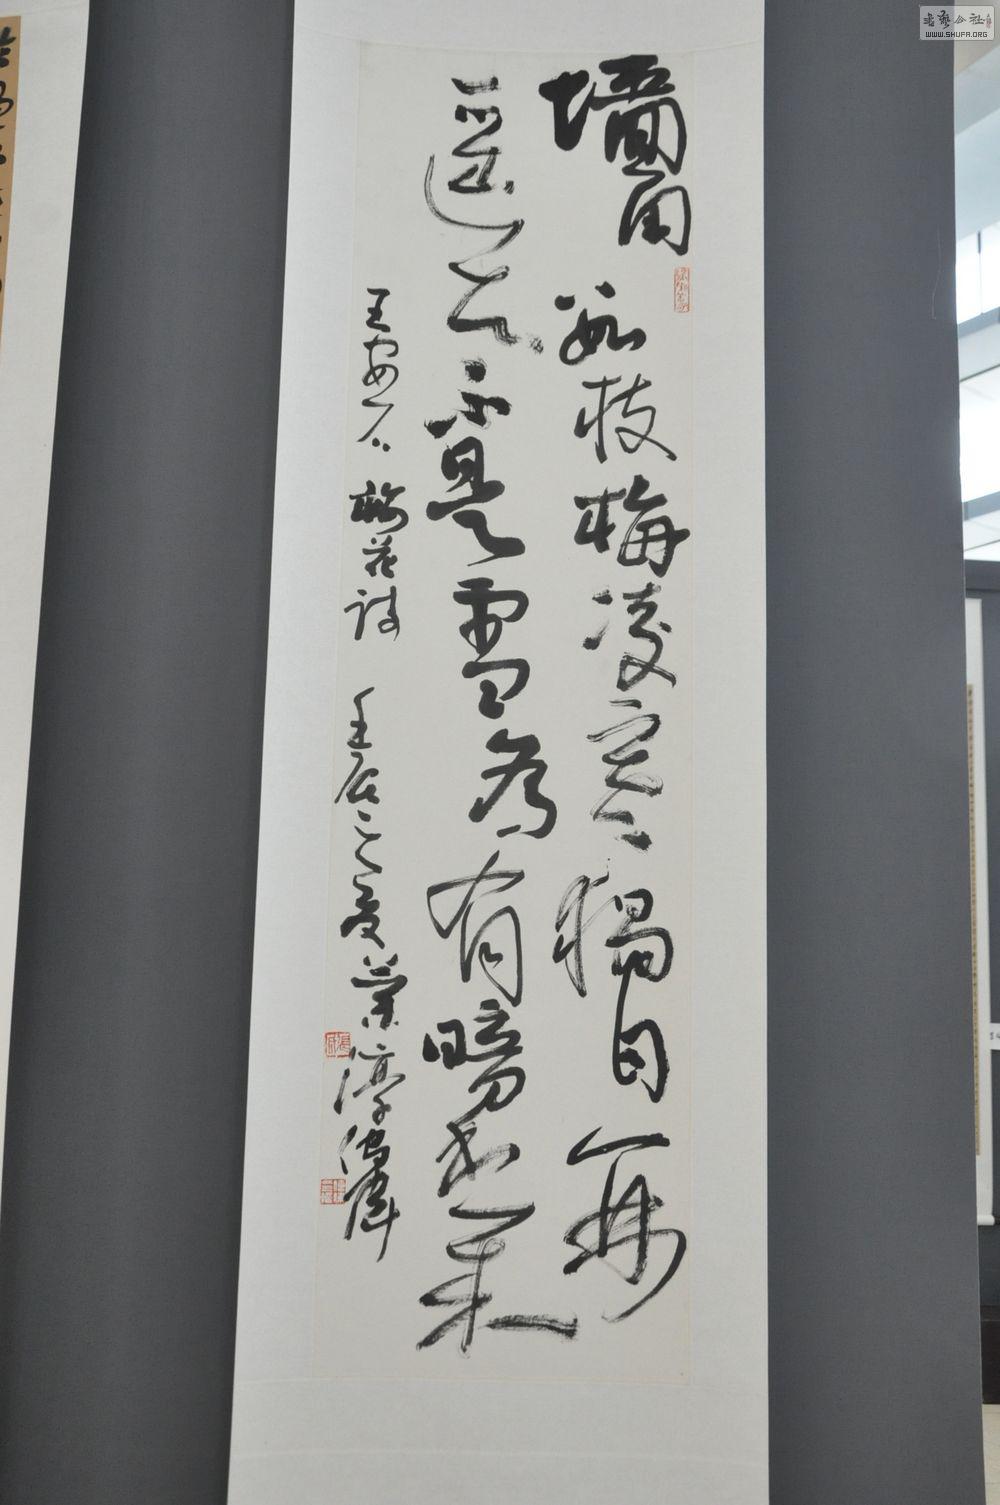 墙角数枝梅凌寒独自开
遥知不是雪为有暗香来
王安石梅花诗 壬辰之夏
WWW.SHUFA.ORG